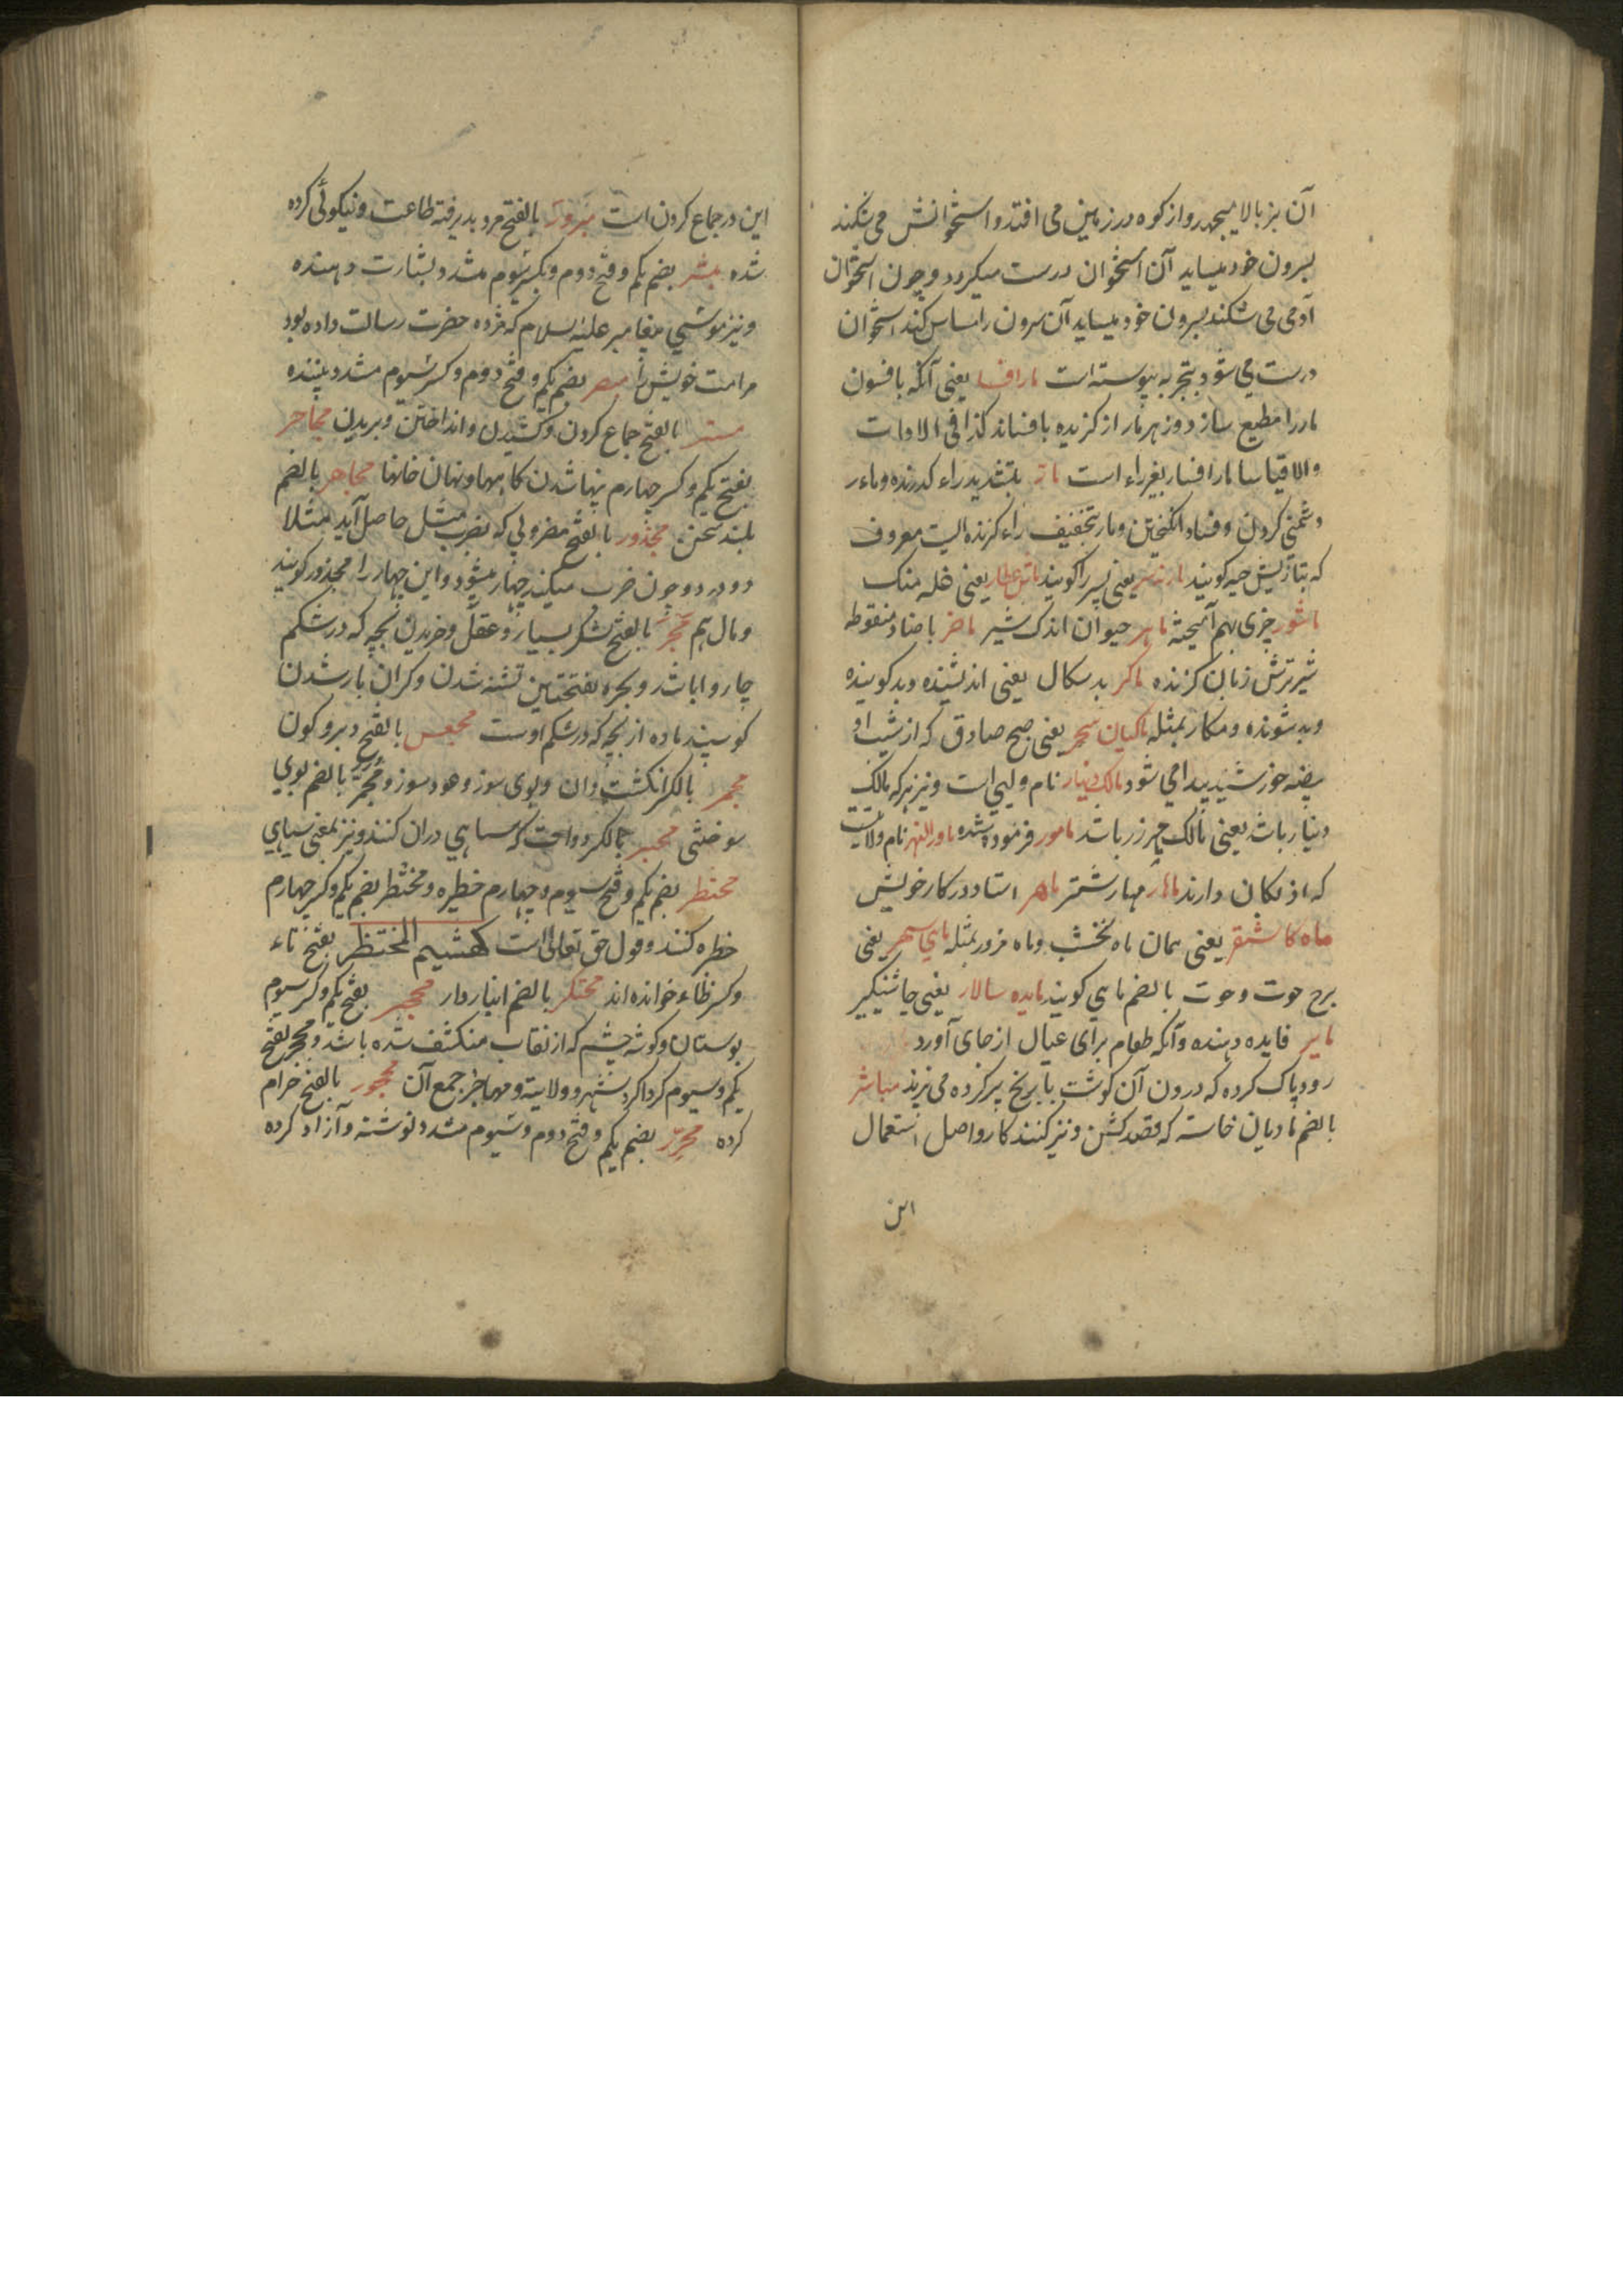 آن بز بالا میجهد و از کوه در زمین می افتد و استخوانش می شکند
بسرون خود میساید آن استخوان درست میگردد و چون استخوان
آدمی می شکند بسرون خود میساید آن سرون را مساس کند استخوان
درست می شود بتجربه پیوسته است مارافسا یعنی آنکه بافسون
مار را مطیع سازد و زهر مار از کزیده بافساند کذا فی الادات
و مار
دشمنی کردن و فساد انکیختن و مار بتخفیف راء کزنده ایست معروف
که بتازیش حیه کویند یعنی پسر را کویند یعنی غله منک
ماشور چیزی بهم آمیخته حیوان اندک شیر ماضر با ضاد منقوطه
شیر ترش زبان کزنده ماکر بد سکال یعنی اندیشنده و بد کوینده
و بد شونده و مکار بمثله ماکیان سحر یعنی صبح صادق که از شب او
بیضه خورشید پیدا می شود مالک دینار نام ولیی است و نیز هر که مالک
دینار باشد یعنی مالک زر باشد مامور فرموده شده ماورالنهر نام ولایت
که دارند ماهار مهار شتر ماهر استاد در کار خویش
ماه کاشغر یعنی همان ماه نخشب و ماه مزور بمثله یعنی
برج حوت و حوت بالضم ماهی کویند مایده سالار یعنی چاشنیکیر
مایر فایده دهنده و آنکه طعام برای عیال از جای آورد
روده پاک کرده که درون آن کوشت با برنج پر کرده می پزند مباشر
بالضم مادیان خاسته که قصد کشن و نیز کنند کار و اصل استعمال
این
این در جماع کردن است مبرور بالفتح مرد پدیرفته طاعت و نیکوئی کرده
شده مبشر بضم یکم و فتح دوم و بکسر سیوم مشدد بشارت دهنده
و نیز پیغامبر علیه السلام که مژده حضرت رسالت داده بود
مر امت خویش را بضم یکم و فتح دوم و کسر سیوم مشدد بیننده
بالفتح جماع کردن و کشیدن و انداختن و بریدن محاجر
بفتح یکم و کسر چهارم خانها مجاهر بالضم
بلند سخن مجذور بالفتح مضروبی که بضرب مثل حاصل آید مثلا
دو در دو چون ضرب میکنند چهار میشود و این چهار را مجذور کویند
و مال هم مجر بالفتح لشکر بسیار و عقل و خریدن بچه که در شکم
چاروا باشد و بجره بفتحتین تشنه شدن و کران بار شدن
کوسپند ماده از بچه که در شکم اوست بالفتح دبر و کون
مجمر بالکسر انکشت دان و بوی سوز و عود سوز و مجمر بالضم بوی
سوختنی محبر بالکسر دوات که سیاهی دران کنند و نیز بمعنی سیاهی
محتظر بضم یکم و فتح سیوم و چهارم خطیره و محتظر بضم یکم و کسر چهارم
خطره کننده و قول حق تعالی است کهشیم المحتظر بفتح تاء
و کسر ظاء خوانده اند محتکر بالضم انباردار محجر بفتح یکم و کسر سیوم
بوستان و کوشه چشم که از نقاب منکشف شده باشد و محجر بفتح
یکم و سیوم کرداکرد شهر و ولایت و محاجر جمع آن محجور بالفتح حرام
کرده محرر بضم یکم و فتح دوم و سیوم مشدد نوشته و آزاد کرده